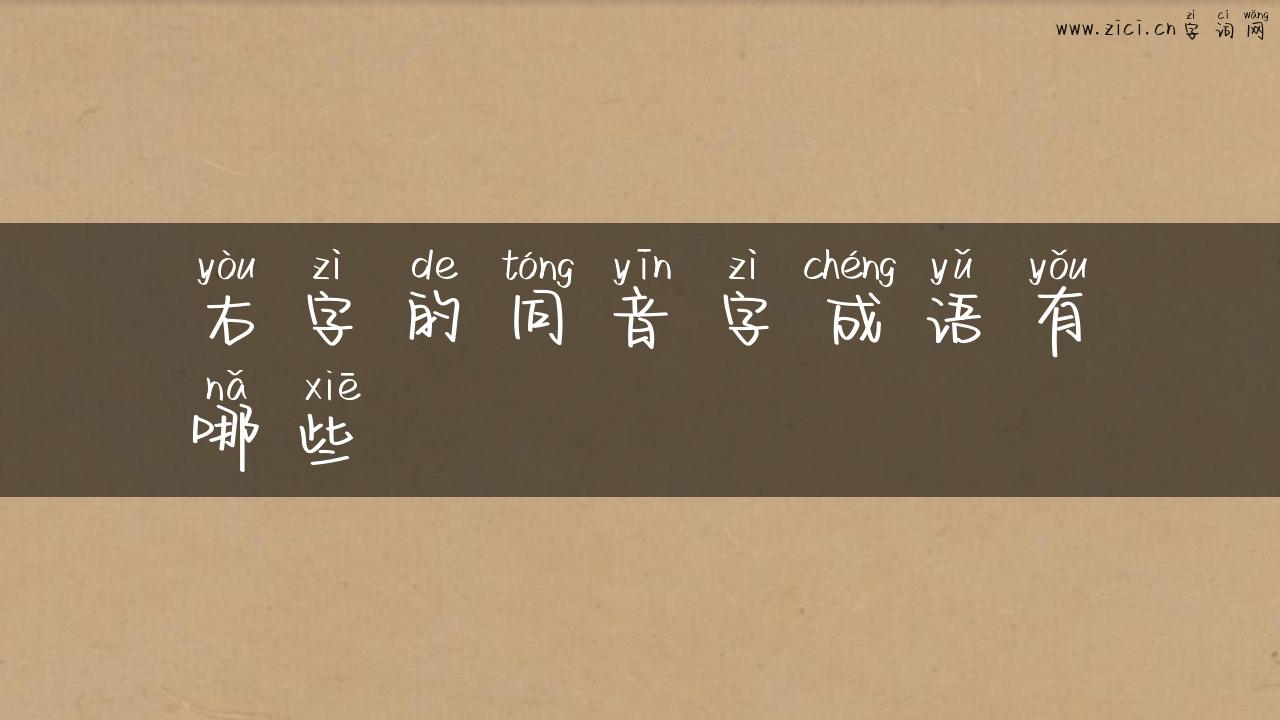 zì cí wǎng
www.zici.cn 字 词 网
yòu zì de tóng yīn zì chéng yǔ yǒu
右 字 的 同 音 字 成 语 有
nǎ xiē
哪 些